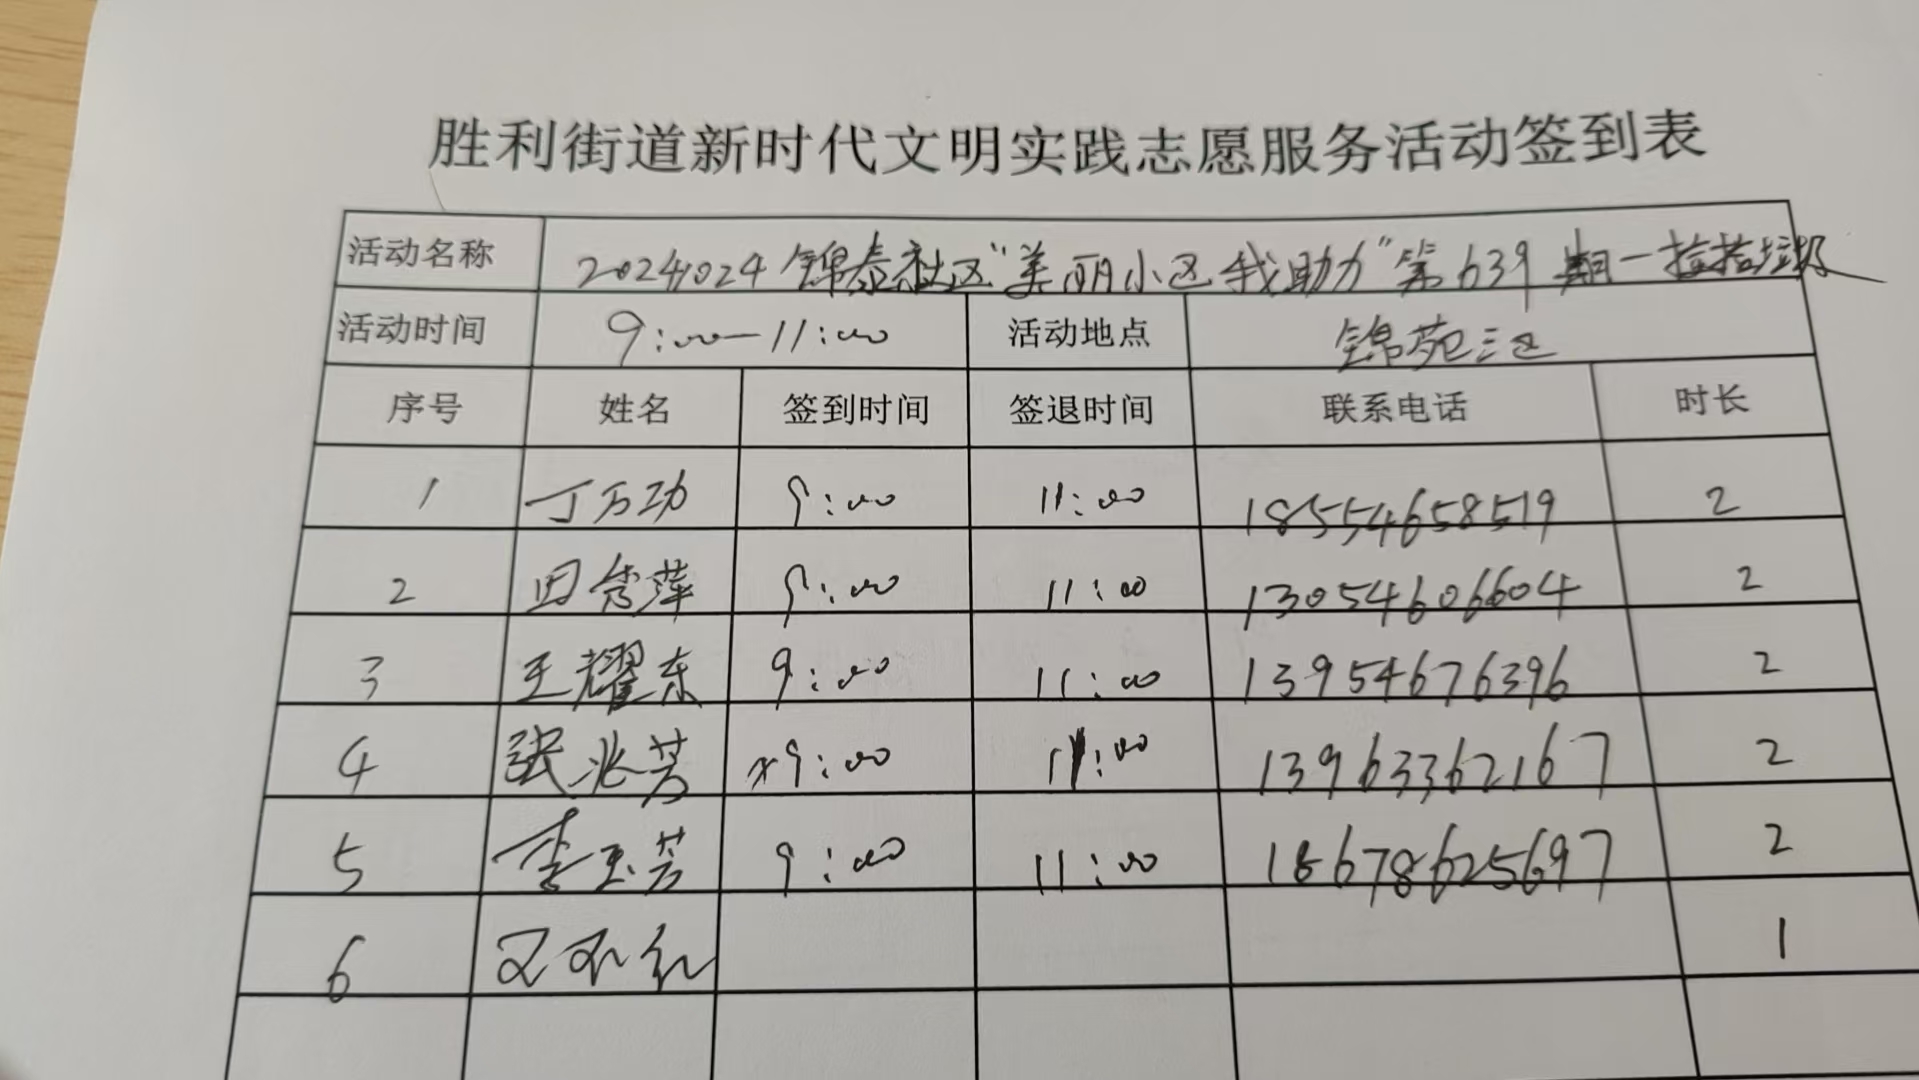 胜利街道新时代文明实践志愿服务活动签到表
活动名称 20241024 锦泰社区“美丽小区我助力”第639期—捡拾垃圾
活动时间 9:00—11:00 活动地点 锦苑三区
序号 姓名 签到时间 签退时间 联系电话 时长
1 丁万功 9:00 11:00 18554658519 2
2 田秀萍 9:00 11:00 13054606604 2
3 王耀东 9:00 11:00 13954676396 2
4 张兆芳 9:00 11:00 13963362167 2
5 李玉芳 9:00 11:00 18678625697 2
6 1